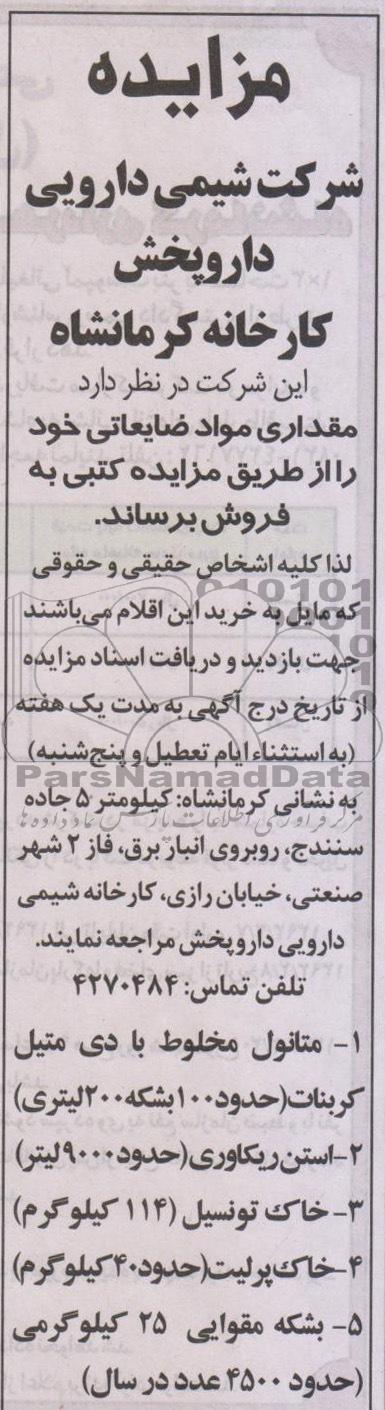 مزایده
شرکت شیمی دارویی
داروپخش
کارخانه کرمانشاه
این شرکت در نظر دارد
مقداری مواد ضایعاتی خود
را از طریق مزایده کتبی به
فروش برساند.
لذا کلیه اشخاص حقیقی و حقوقی
که مایل به خرید این اقلام می‌باشند
جهت بازدید و دریافت اسناد مزایده
از تاریخ درج آگهی به مدت یک هفته
(به استثناء ایام تعطیل و پنج‌شنبه)
ParsNamadData
به نشانی کرمانشاه: کیلومتر ۵ جاده
مرکز فرآوری اطلاعات پارس نماد داده ها
سنندج، روبروی انبار برق، فاز ۲ شهر
صنعتی، خیابان رازی، کارخانه شیمی
دارویی داروپخش مراجعه نمایند.
تلفن تماس: ۴۲۷۰۴۸۴
۱- متانول مخلوط با دی متیل
کربنات(حدود۱۰۰بشکه۲۰۰لیتری)
۲-استن ریکاوری(حدود۹۰۰۰لیتر)
۳- خاک تونسیل (۱۱۴ کیلوگرم)
۴-خاک‌پرلیت(حدود۴۰کیلوگرم)
۵- بشکه مقوایی ۲۵ کیلوگرمی
(حدود ۴۵۰۰ عدد در سال)